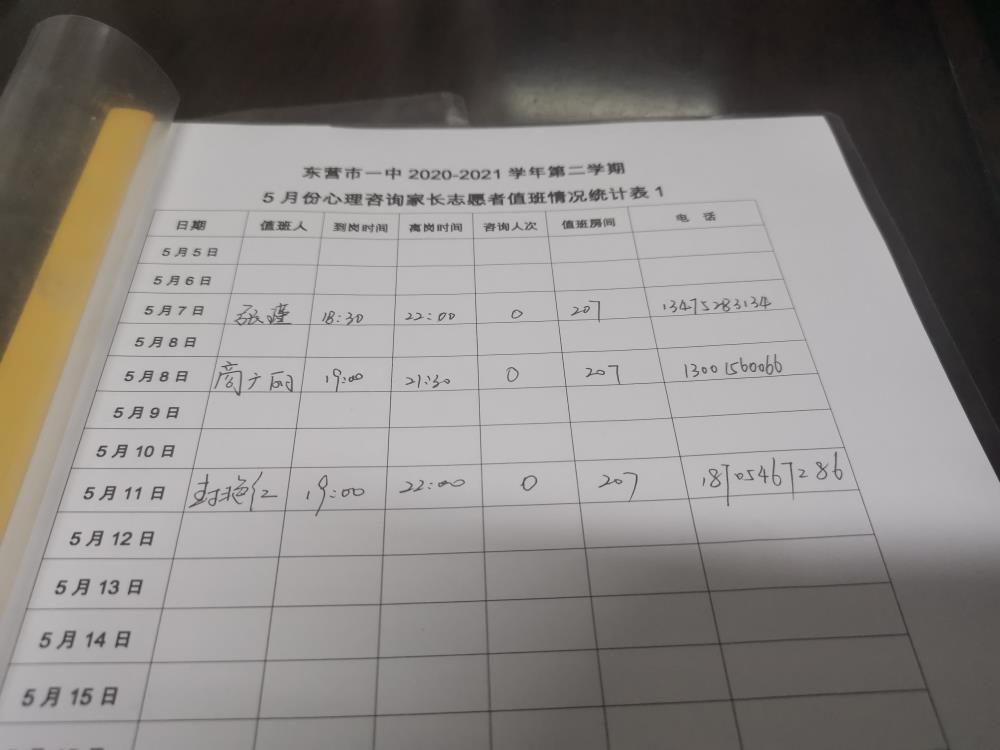 东营市一中 2020-2021 学年第二学期
5 月份心理咨询家长志愿者值班情况统计表 1
日期 值班人 到岗时间 离岗时间 咨询人次 值班房间 电 话
5 月 5 日
5 月 6 日
5 月 7 日 张瑾 18:30 22:00 0 207 13475283134
5 月 8 日
5 月 8 日 商广丽 19:00 21:30 0 207 13001560066
5 月 9 日
5 月 10 日
5 月 11 日 封艳红 19:00 22:00 0 207 18705467286
5 月 12 日
5 月 13 日
5 月 14 日
5 月 15 日